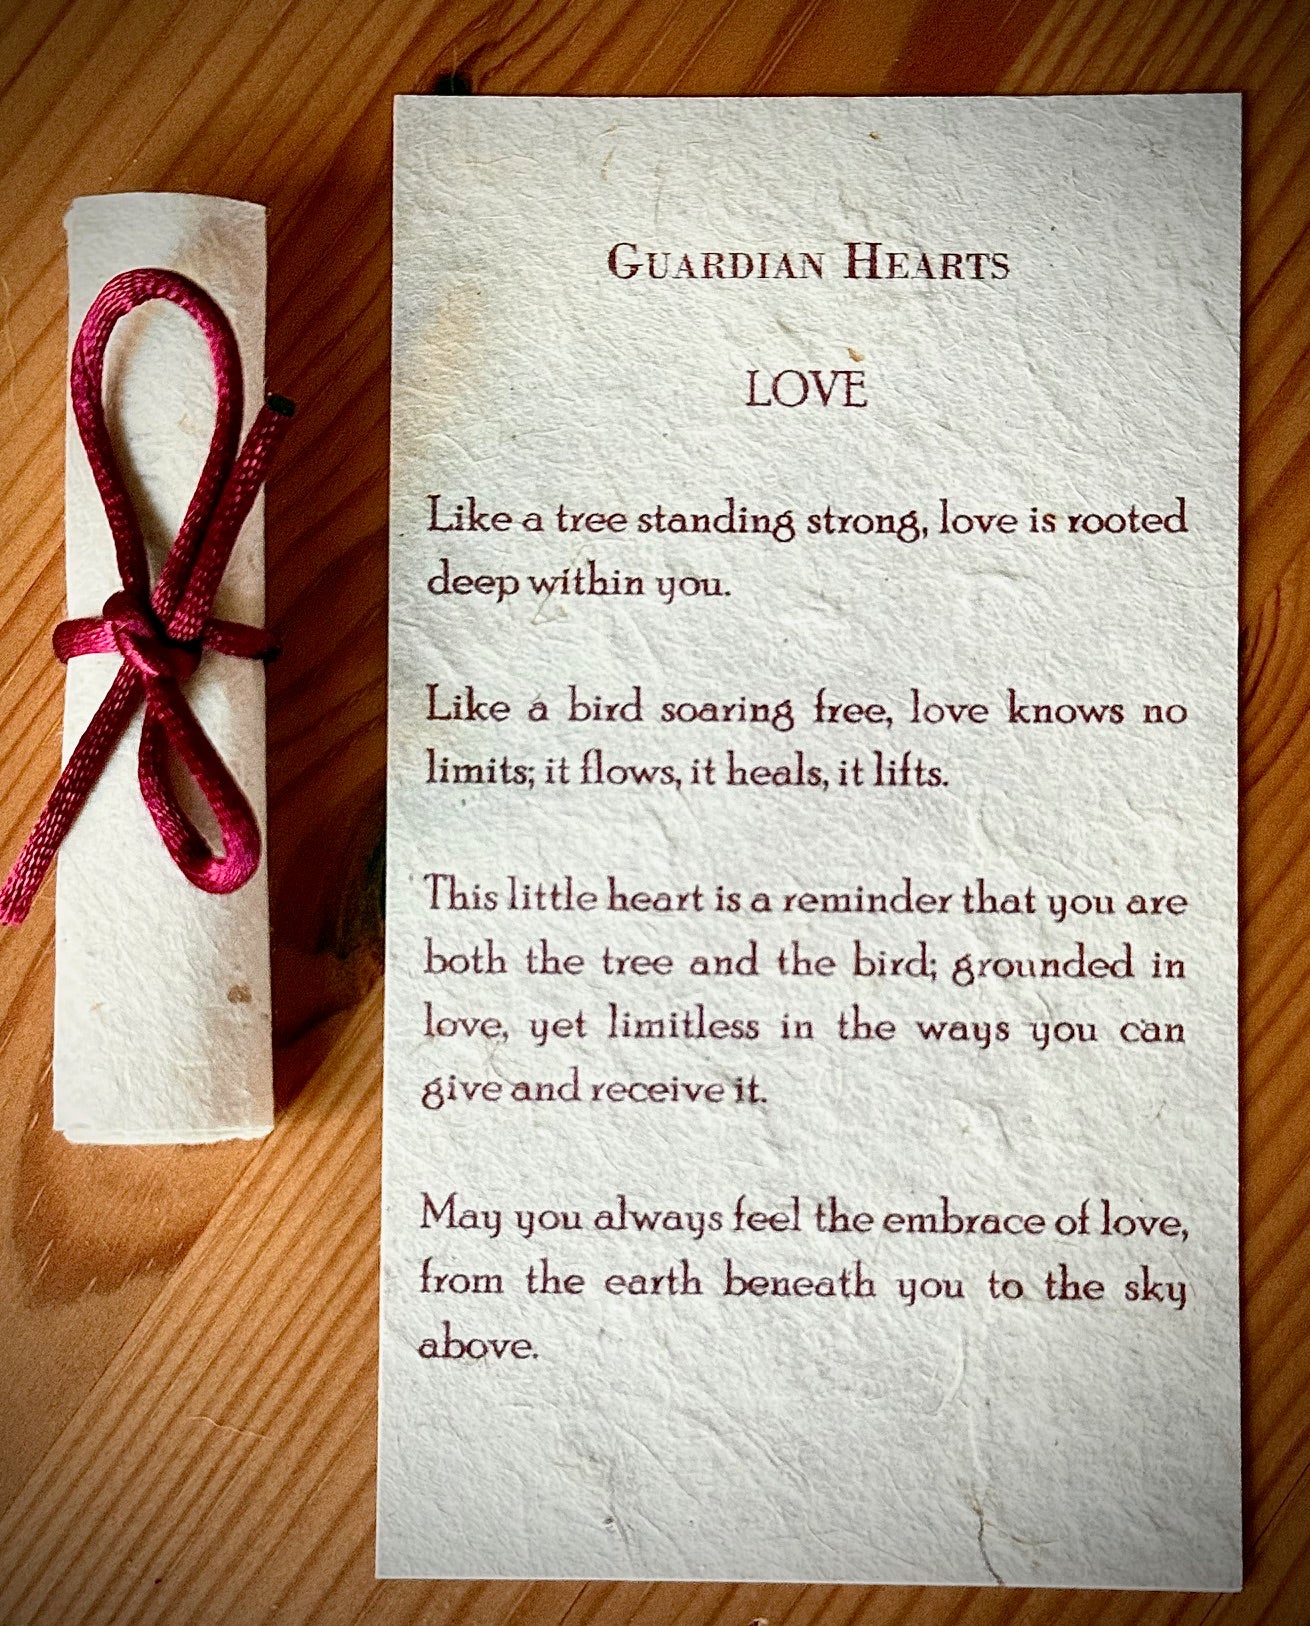 GUARDIAN HEARTS
LOVE
Like a tree standing strong, love is rooted
deep within you.
Like a bird soaring free, love knows no
limits; it flows, it heals, it lifts.
This little heart is a reminder that you are
both the tree and the bird; grounded in
love, yet limitless in the ways you can
give and receive it.
May you always feel the embrace of love,
from the earth beneath you to the sky
above.